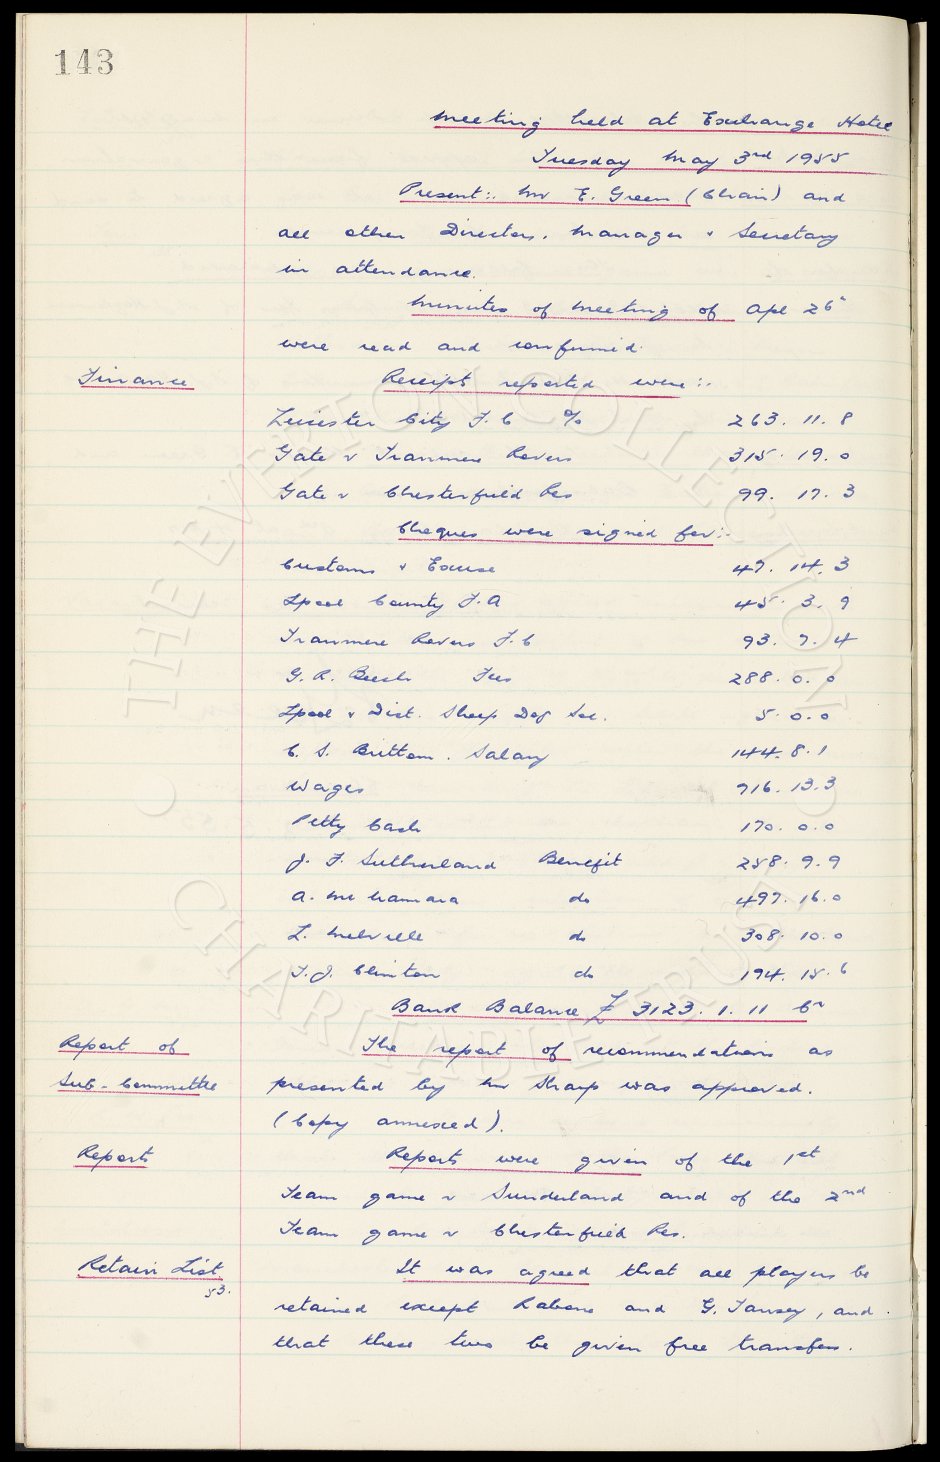 143
Meeting held at Exchange Hotel
Tuesday May 3rd 1955
Present:. Mr E. Green (Chair) and
all other Directors. Manager & Secretary
in attendance.
Minutes of Meeting of Apl 26"
were read and confirmed.
Finance
Receipts reported were:-
Leicester City F.C %
263. 11. 8
Gate v Tranmere Rovers
315. 19. 0
Gate v Chesterfield Res
99. 17. 3
Cheques were signed for:-
Customs & Excise
47. 14. 3
Lpool County F.A
45. 3. 9
Tranmere Rovers F.C
93. 7. 4
G. R. Fees
288. 0. 0
Lpool & Dist. Sheep Dog Soc.
5. 0. 0
C. S. Britton. Salary
144. 8. 1
Wages
716. 13. 3
Petty Cash
170. 0. 0
J. F. Sutherland Benefit
258. 9. 9
A. McNamara do
497. 16. 0
L. Melville do
308. 10. 0
T. J. Clinton do
194. 15. 6
Bank Balance £ 3123. 1. 11 Cr
Report of
Sub-Committee
The report of recommendations as
presented by Mr Sharp was approved.
(Copy annexed).
Reports
Reports were given of the 1st
Team game v Sunderland and of the 2nd
Team game v Chesterfield Res.
Retain List
53.
It was agreed that all players be
retained except Rabone and G. Tansey, and
that these two be given free transfers.
THE EVERTON COLLECTION
CHARITABLE TRUST